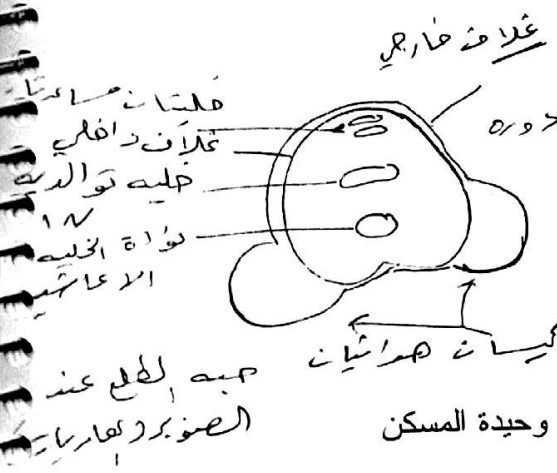 غلاف خارجي
دوره
خليتان مساعدتان
غلاف داخلي
خليه توالديه
١ن
نواة الخليه
الاعاشيه
كيسات هوائيان
حبه الطلع عند
الصنوبر وعاريات
وحيدة المسكن